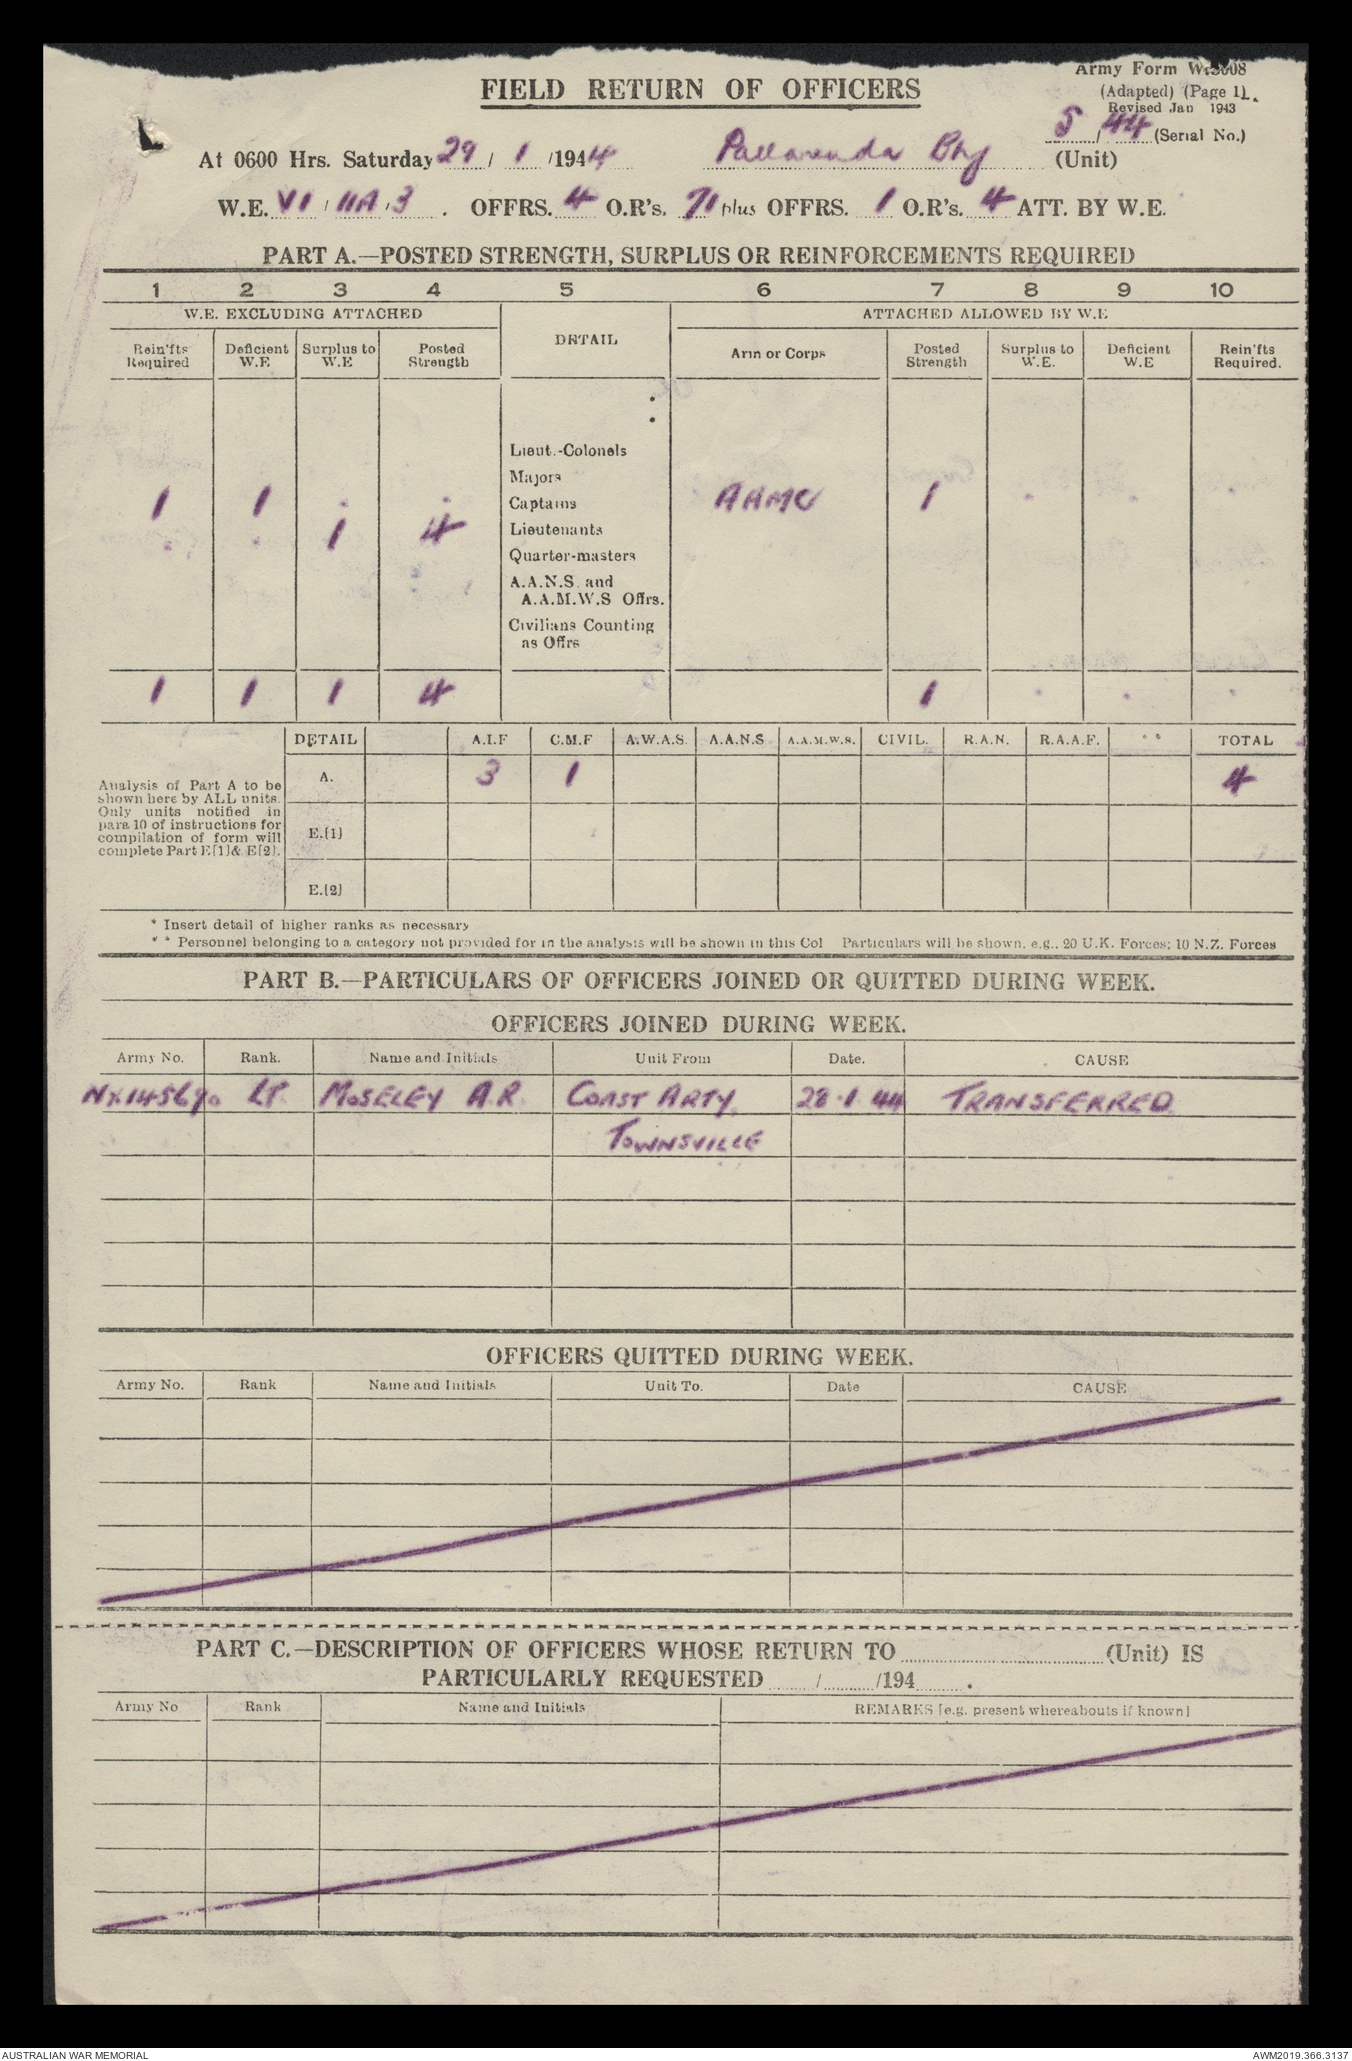 Army Form W.3008
FIELD RETURN OF OFFICERS
(Adapted) (Page 1).
Revised Jan 1943
5/44 (Serial No.)
At 0600 Hrs. Saturday 29/1/1944 Pallarenda Bty (Unit)
W.E. VI/IIA/3. OFFRS. 4 O.R's. 71 plus OFFRS. 1 O.R's. 4 ATT. BY W.E.
PART A.—POSTED STRENGTH, SURPLUS OR REINFORCEMENTS REQUIRED
1 2 3 4 5 6 7 8 9 10
W.E. EXCLUDING ATTACHED DETAIL ATTACHED ALLOWED BY W.E
Rein'fts Required Deficient W.E Surplus to W.E Posted Strength Arm or Corps Posted Strength Surplus to W.E. Deficient W.E Rein'fts Required.
Lieut.-Colonels
Majors
1 1 . . Captains AAMC 1 . . .
. . 1 4 Lieutenants
Quarter-masters
A.A.N.S. and
A.A.M.W.S Offrs.
Civilians Counting
as Offrs
1 1 1 4 1 . . .
DETAIL A.I.F C.M.F A.W.A.S. A.A.N.S A.A.M.W.S. CIVIL. R.A.N. R.A.A.F. * * TOTAL
A. 3 1 4
Analysis of Part A to be
shown here by ALL units.
Only units notified in
para 10 of instructions for
compilation of form will
complete Part E[1]& E[2].
E.[1]
E.[2]
* Insert detail of higher ranks as necessary
* * Personnel belonging to a category not provided for in the analysis will be shown in this Col Particulars will be shown. e.g., 20 U.K. Forces; 10 N.Z. Forces
PART B.—PARTICULARS OF OFFICERS JOINED OR QUITTED DURING WEEK.
OFFICERS JOINED DURING WEEK.
Army No. Rank. Name and Initials Unit From Date. CAUSE
NX145690 LT. MOSELEY A.R. COAST ARTY 28.1.44 TRANSFERRED
TOWNSVILLE
OFFICERS QUITTED DURING WEEK.
Army No. Rank Name and Initials Unit To. Date CAUSE
PART C.—DESCRIPTION OF OFFICERS WHOSE RETURN TO (Unit) IS
PARTICULARLY REQUESTED / /194 .
Army No Rank Name and Initials REMARKS [e.g. present whereabouts if known]
AUSTRALIAN WAR MEMORIAL AWM2019.366.3137